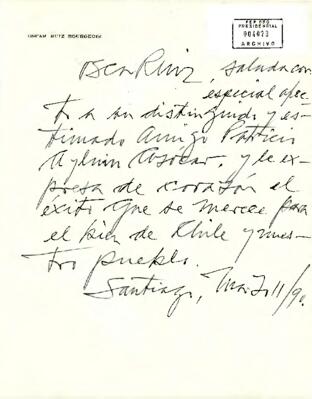 OSCAR RUIZ BOURGEOIS
PERIODO
PRESIDENCIAL
004073
ARCHIVO
Oscar Ruiz, saluda con
especial afec
to a su distinguido y es-
timado Amigo Patricio
Aylwin Azocar, y le ex-
presa de corazón el
éxito que se merece para
el bien de Chile y nues-
tro pueblo.
Santiago, Marzo 11/90.